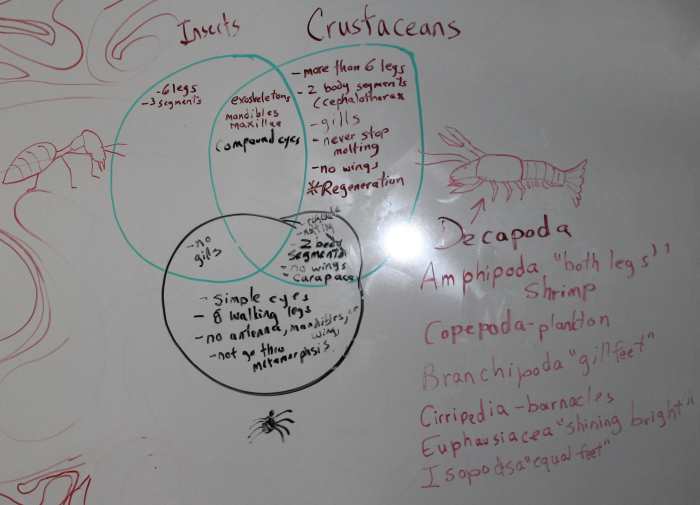 Insects
Crustaceans
-6 legs
-3 segments
exoskeletons
mandibles
maxillae
compound eyes
- more than 6 legs
- 2 body segments
(cephalothorax
- gills
- never stop
molting
- no wings
*Regeneration
- no
gills
- 2 body
segments
- no wings
- carapace
- simple eyes
- 8 walking legs
- no antennae, mandibles, or
wing
- not go thru
metamorphsis
Decapoda
Amphipoda "both legs"
Shrimp
Copepoda-plankton
Branchipoda "gill feet"
Cirripedia-barnacles
Euphausiacea "shining bright"
Isopodsa "equal feet"